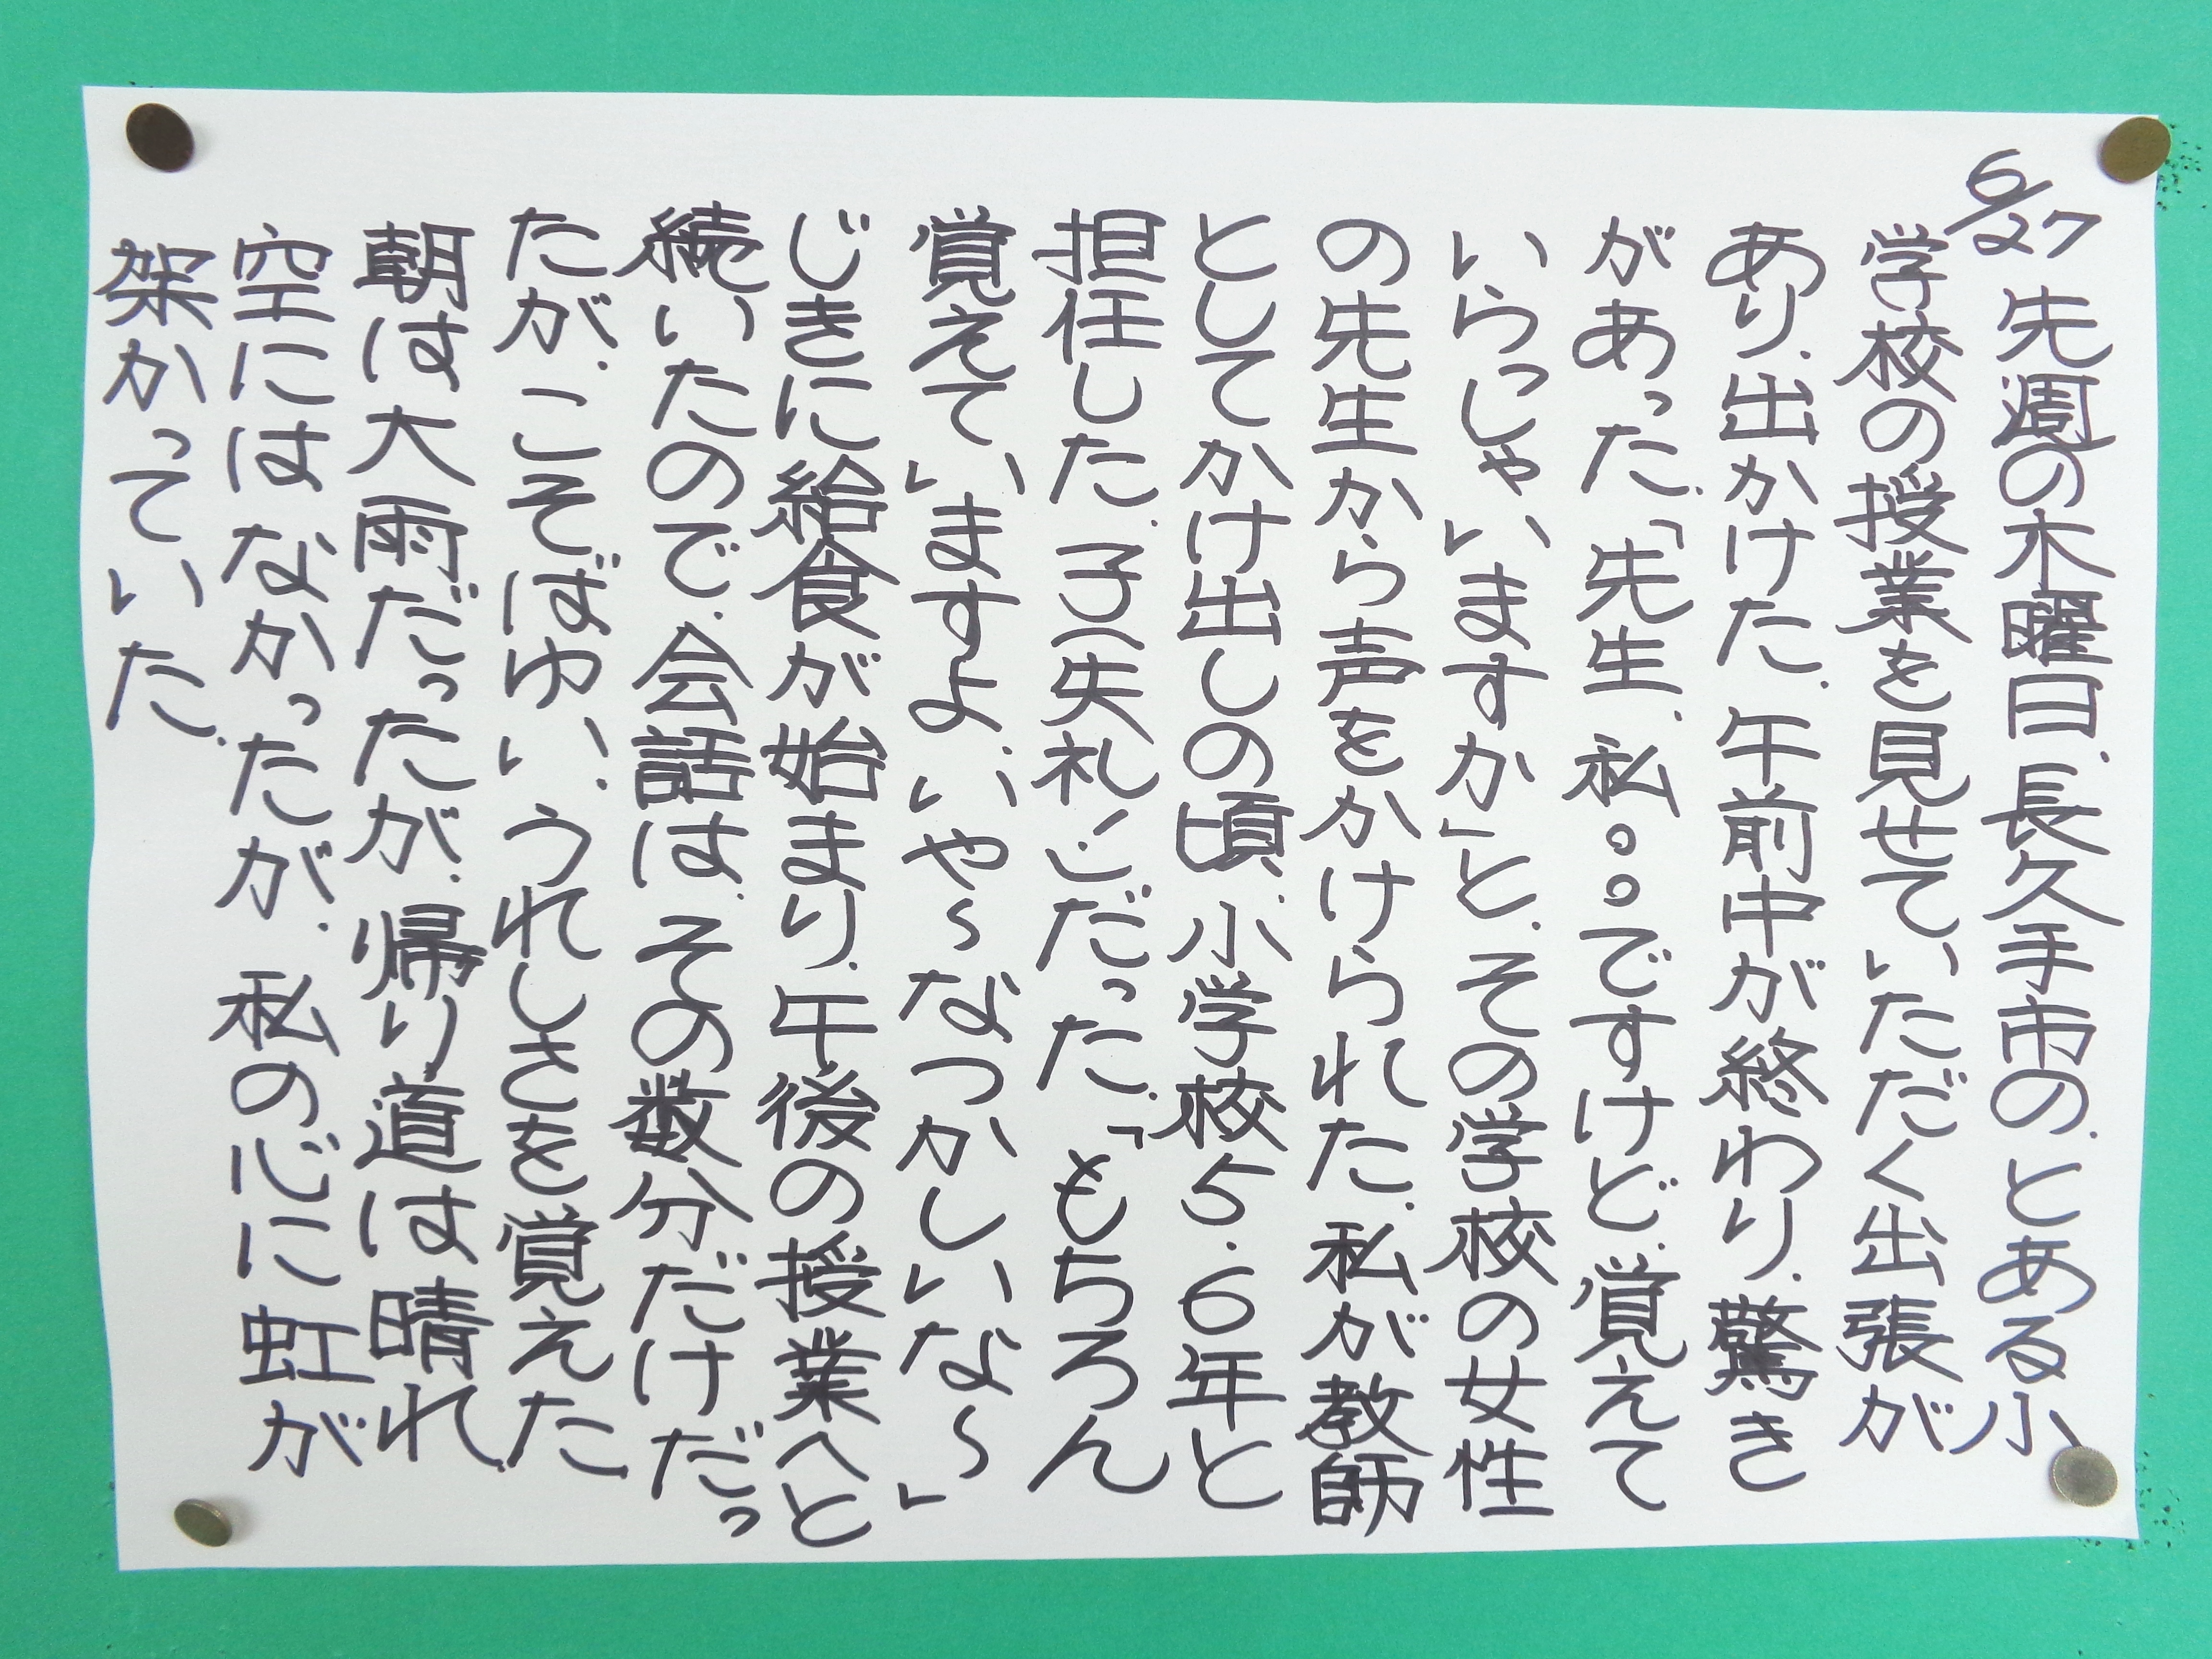 6/27 先週の木曜日、長久手市の、とある小
学校の授業を見せていただく出張が
あり、出かけた。午前中が終わり、驚き
があった。「先生、私○○ですけど、覚えて
いらっしゃいますか」と、その学校の女性
の先生から声をかけられた。私が教師
としてかけ出しの頃、小学校5・6年と
担任した、子(失礼!)だった。「もちろん
覚えていますよ、いや~なつかしいな~」
じきに給食が始まり、午後の授業へと
続いたので、会話は、その数分だけだっ
たが、こそばゆい、うれしさを覚えた
朝は大雨だったが、帰り道は晴れ。
空にはなかったが、私の心に虹が
架かっていた。